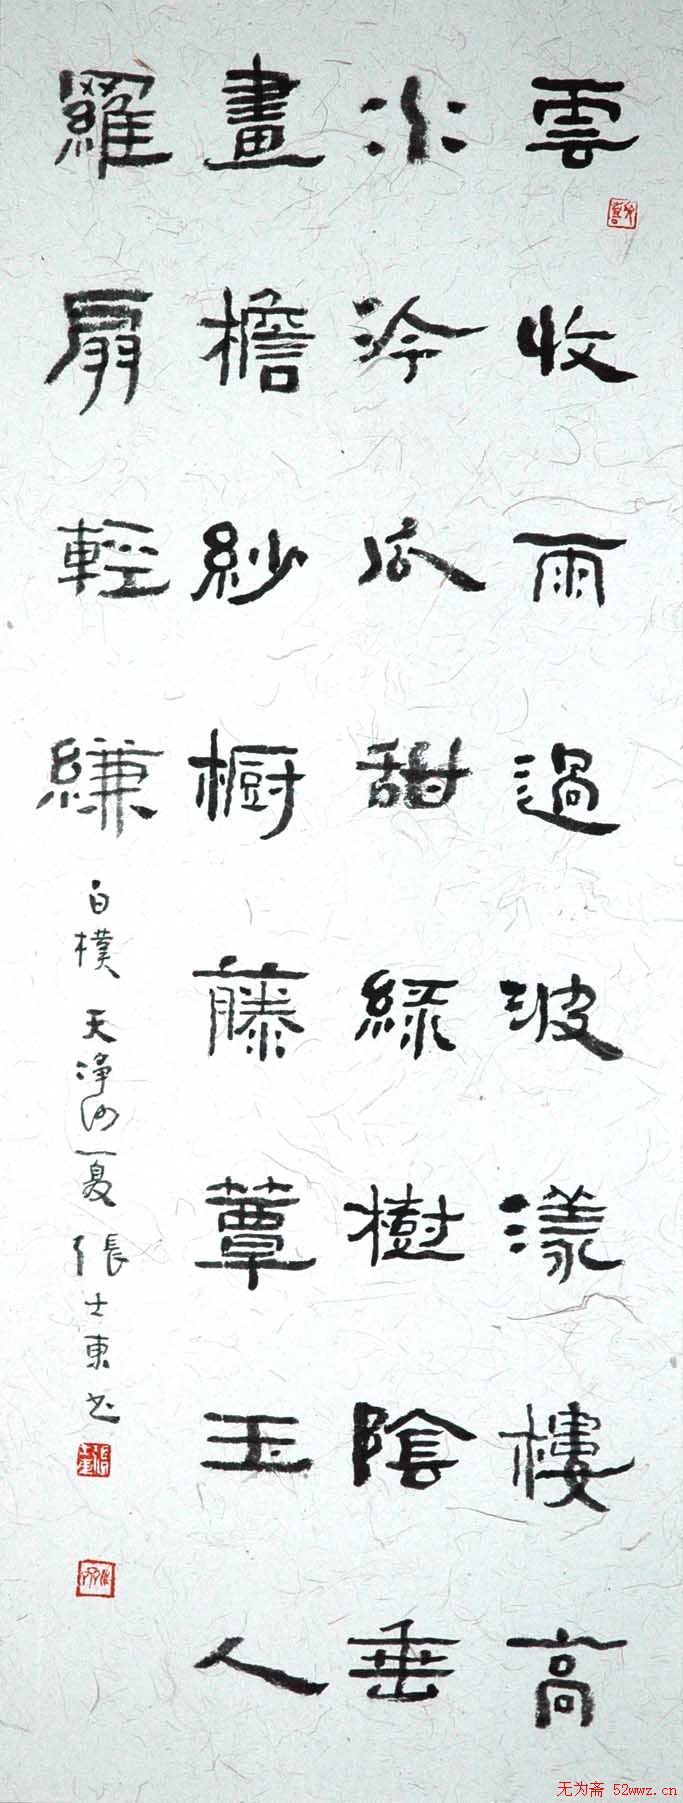 雲收雨過波漾樓高
水泠瓜甜綠樹陰垂
畫檐紗橱藤蕈玉人
羅扇輕縑
白樸天淨沙夏張士東书
无为斋 52wwz.cn